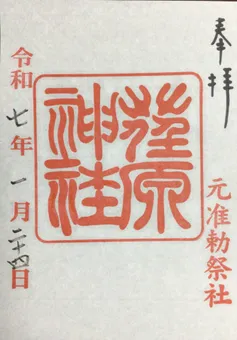 奉拝
元准勅祭社
荏原
神社
令和七年一月二十四日